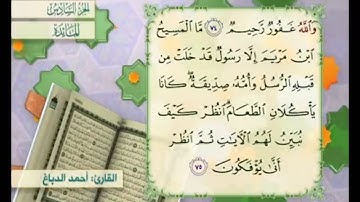 الجزء السادس
المائدة
وَاللَّهُ غَفُورٌ رَّحِيمٌ ٧٤ مَّا الْمَسِيحُ
ابْنُ مَرْيَمَ إِلَّا رَسُولٌ قَدْ خَلَتْ مِن
قَبْلِهِ الرُّسُلُ وَأُمُّهُ صِدِّيقَةٌ كَانَا
يَأْكُلَانِ الطَّعَامَ انظُرْ كَيْفَ
نُبَيِّنُ لَهُمُ الْآيَاتِ ثُمَّ انظُرْ
أَنَّىٰ يُؤْفَكُونَ ٧٥
القارئ: أحمد الدباغ